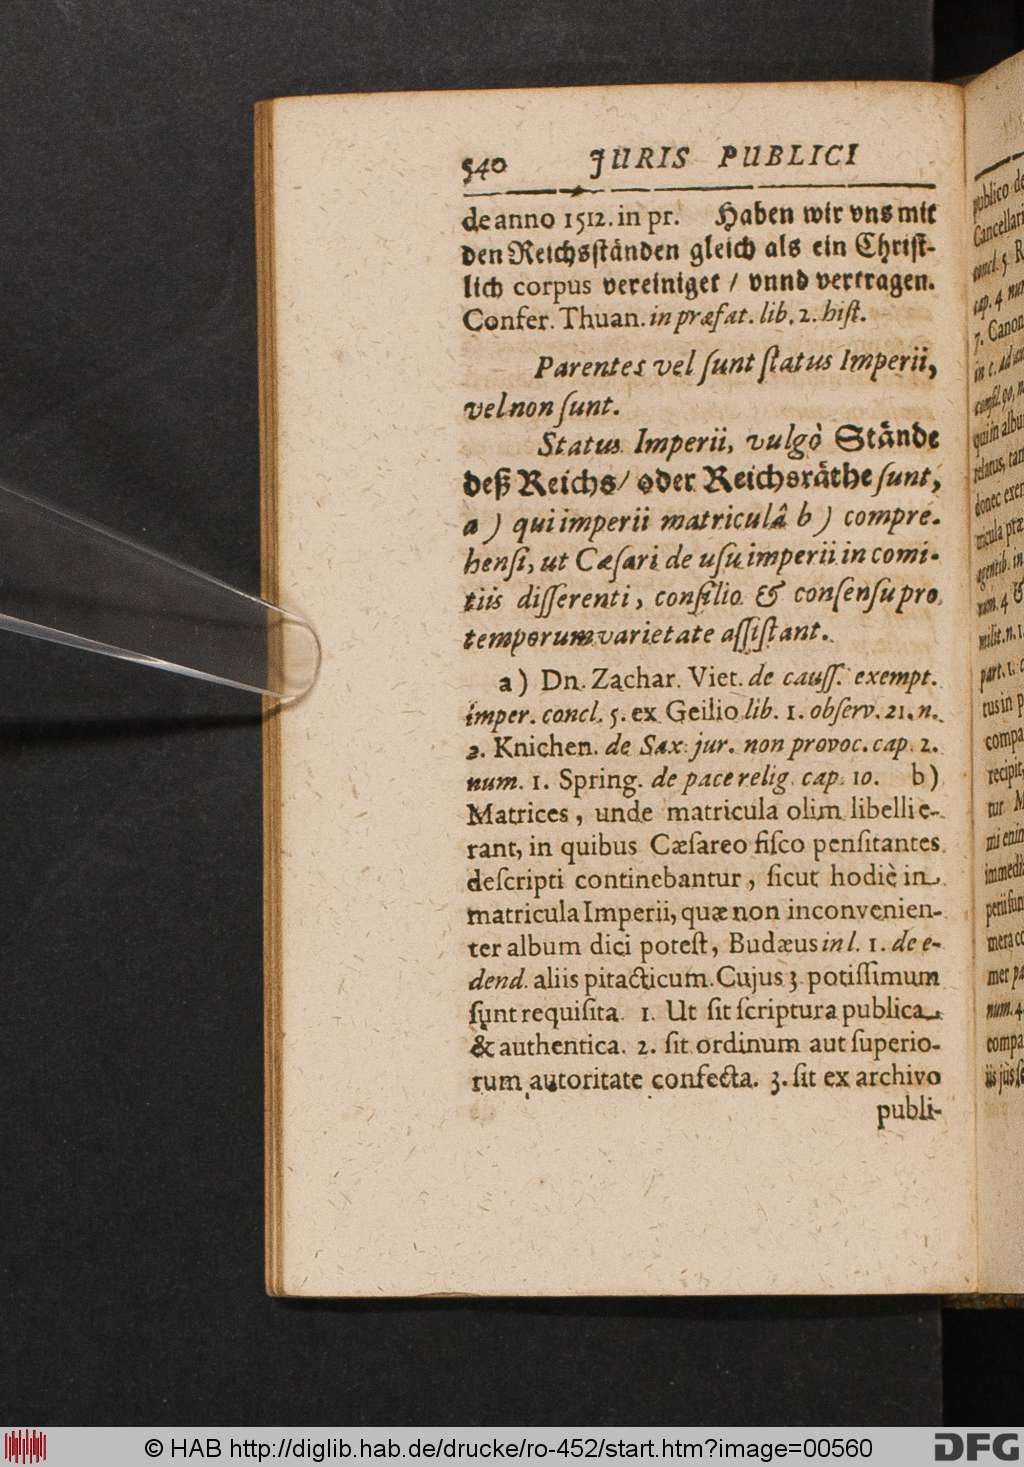 540 JURIS PUBLICI
de anno 1512. in pr. Haben wir vns mit
den Reichsständen gleich als ein Christ-
lich corpus vereiniget / vnnd vertragen.
Confer. Thuan. in præfat. lib. 2. hiſt.
Parentes vel ſunt ſtatus Imperii,
vel non ſunt.
Status Imperii, vulgò Stände
deß Reichs/ oder Reichsräthe ſunt,
a ) qui imperii matriculâ b ) compre-
henſi, ut Cæſari de uſu imperii in comi-
tiis differenti, conſilio & conſenſu pro
temporum varietate aſſiſtant.
a ) Dn. Zachar. Viet. de cauſſ. exempt.
imper. concl. 5. ex Geilio lib. 1. obſerv. 21. n.
2. Knichen. de Sax. jur. non provoc. cap. 2.
num. 1. Spring. de pace relig. cap. 10. b )
Matrices, unde matricula olim libelli e-
rant, in quibus Cæſareo fiſco penſitantes
deſcripti continebantur, ſicut hodiè in
matricula Imperii, quæ non inconvenien-
ter album dici poteſt, Budæus in l. 1. de e-
dend. aliis pitacticum. Cujus 3. potiſſimum
ſunt requiſita. 1. Ut ſit ſcriptura publica
& authentica. 2. ſit ordinum aut ſuperio-
rum autoritate confecta. 3. ſit ex archivo
publi-
publico de
Cancellari
concl. 5. R
cap. 4. num
7. Canon
in c. ad au
conſil. 90. n
qui in albu
relatus, tam
donec exer
tricula præ
agentib. in
num. 4 &
milit. n. 1
part. 1. c
tus in p
compa
recipit
tur. M
mi enim
immedia
perii ſun
mera co
mer pa
num. 4
compa
iis jus ſe
© HAB http://diglib.hab.de/drucke/ro-452/start.htm?image=00560
DFG